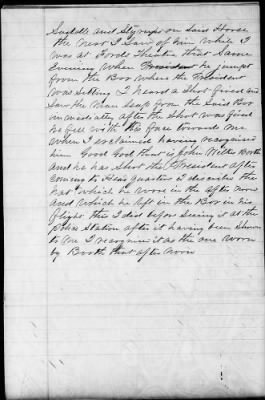 Saddle and Styrups on Said Horse
the next I Saw of him while I
was at Fords Theatre that Same
Evening when President he jumpt
from the Box where the President
was Sitting I heard a Shot fired and
Saw the Man leap from the Said Box
immediatly after the Shot was fired
he fell with his face towards me
when I exclaimed having recognised
him Good God that is John Wilkes Booth
and he has Shot the President after
coming to Head quarters I described the
hat which he wore in the after noon
and which he left in the Box in his
flight this I did before Seeing it at the
Police Station after it having been Shown
to me I recognise it as the one worn
by Booth that after noon